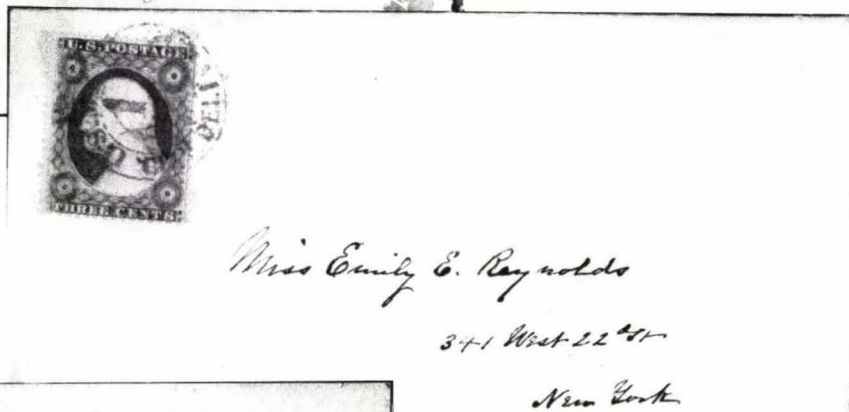 U.S. POSTAGE
THREE CENTS
Miss Emily E. Reynolds
341 West 22d St
New York